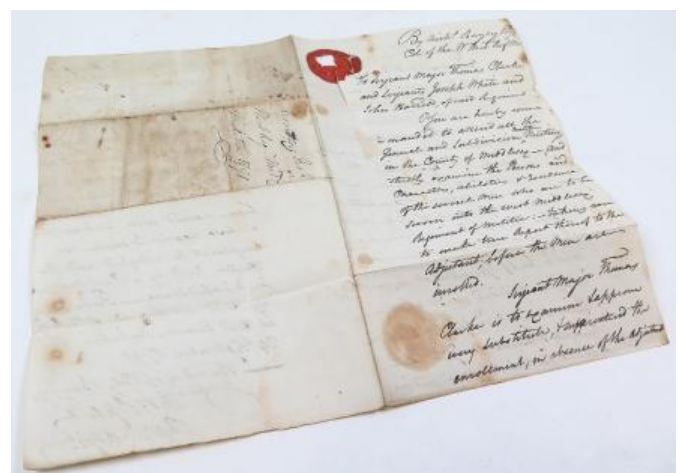 Col. of the W
To Serjeant Major Thomas Clarke
and Serjeants Joseph White and
John said Regiment
You are hereby com
=manded to attend all the
General and Subdivision Meetings
in the County of Middlesex — And
strictly examine the Persons and
Characters, abilities & Residence
of the several Men who are to be
sworn into the West Middlesex
Regiment of Militia: — taking care
to make true Report thereof to the
Adjutant, before the Men are
inrolled.
Serjeant Major Thomas
Clarke is to examine & approve
every Substitute, & superintend the
enrollment, in absence of the Adjutant